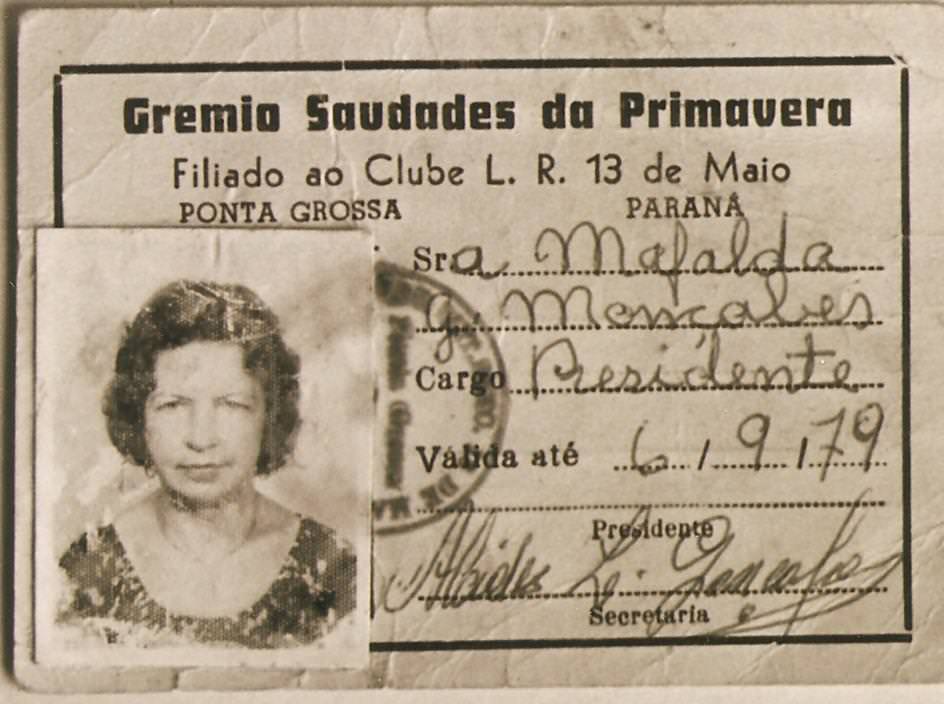 Gremio Saudades da Primavera
Filiado ao Clube L. R. 13 de Maio
PONTA GROSSA PARANÁ
Sra Mafalda
G. Monçalves
Cargo Presidente
Válida até 6 / 9 / 79
Presidente
Secretaria